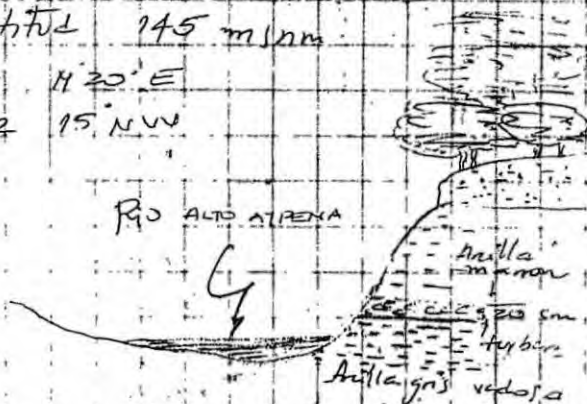 145 msnm
N 20° E
15° NW
RIO ALTO
Arcilla
marron
20 cm
turba
Arcilla gris verdosa